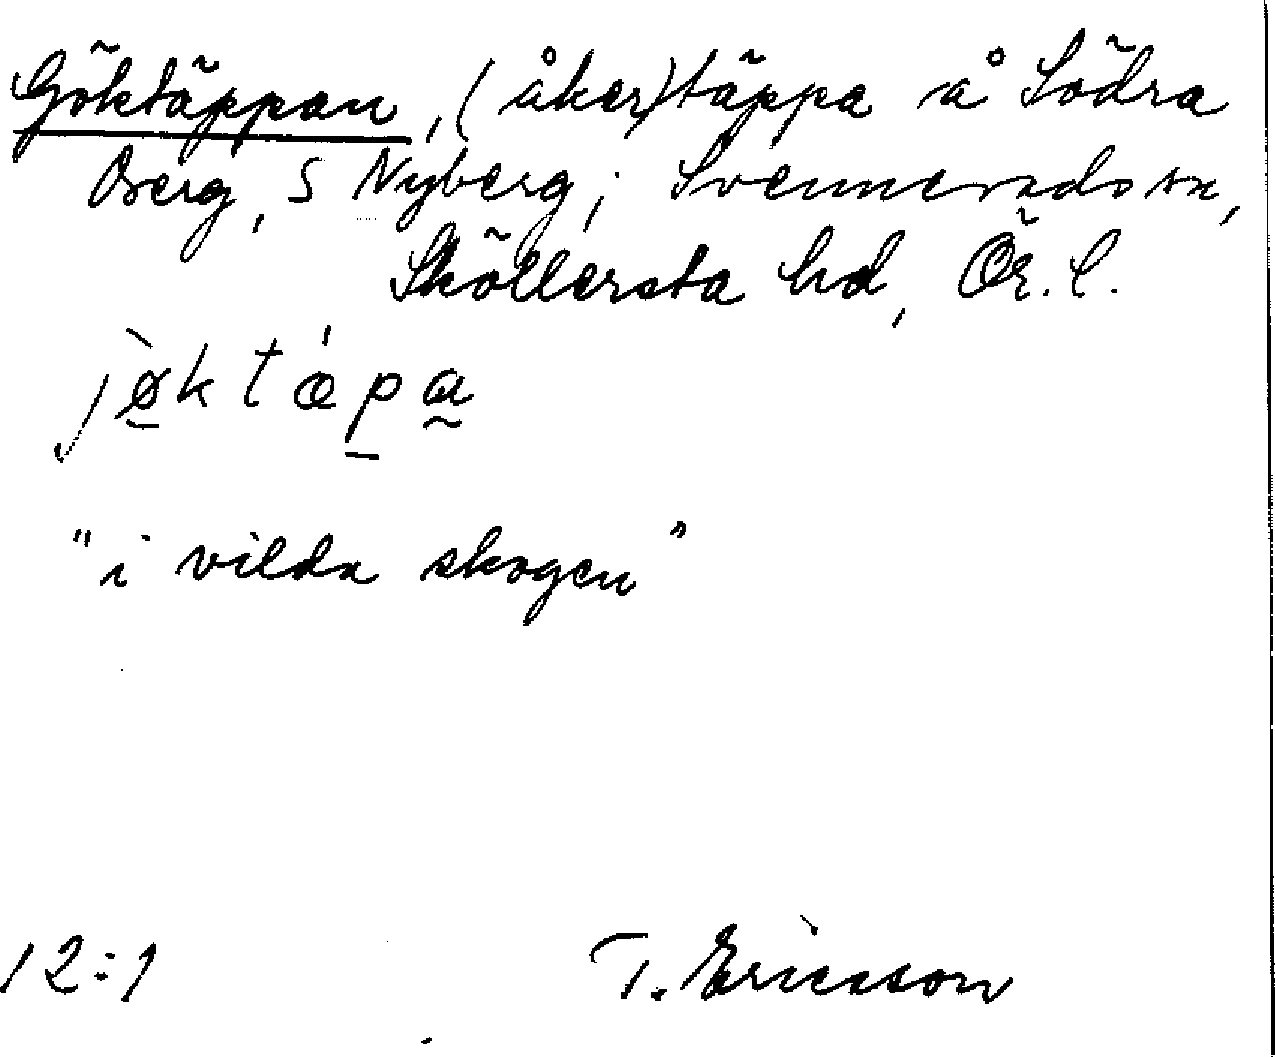 Göktäppan, (åker)täppa å Södra
Berg, S Nyberg; Svennevads sn,
Sköllersta hd, Ör. l.
jø̀ktǽpa
"i vilda skogen"
12:1 T. Ericsson